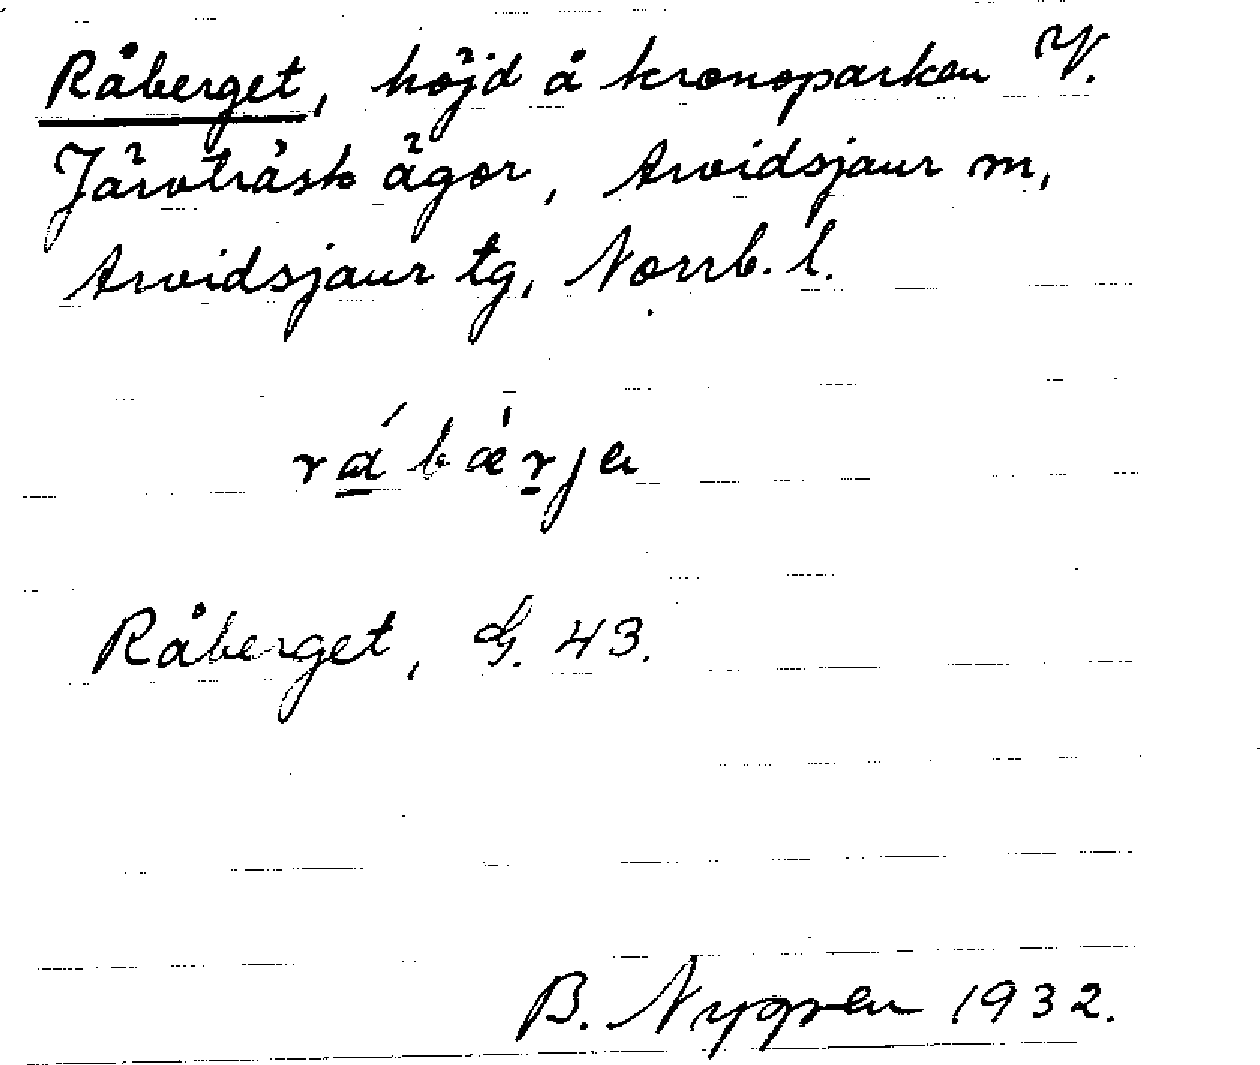 Råberget, höjd å kronoparken V.
Järvträsk ägor, Arvidsjaur sn,
Arvidsjaur tg, Norrb. l.
rábæ̀rja
Råberget, G. 43.
B. Nygren 1932.